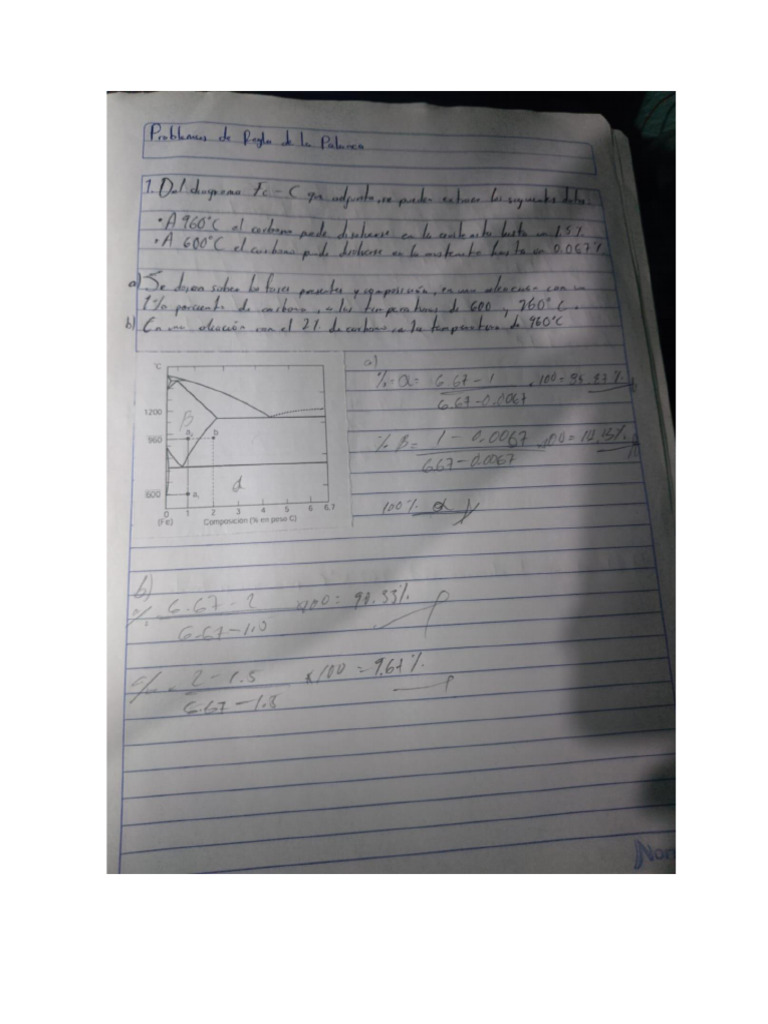 Problemas de Regla de la Palanca
1. Del diagrama Fe-C que adjunto, se pueden extraer los siguientes datos:
• A 960°C el carbono puede disolverse en la hasta un 1.5%
• A 600°C el carbono puede disolverse en la hasta un 0.067%
a) Se desean sobre las fases presentes y composición, en una aleación con un
1% porciento de carbono, a las temperaturas de 600 y 260°C.
b) En una aleación con el 2% de carbono a la temperatura de 960°C
°C
1200
960
600
B
a
b
a₁
d
0 1 2 3 4 5 6 6,7
(Fe) Composición (% en peso C)
a)
% α = 6.67-1 / 6.67-0.0067 .100=
% B = 1-0.0067 / 6.67-0.0067 .100=
100% α
b)
% 6.67-2 / 6.67-1.5 ×100= 90.33%
% = 2-1.5 / 6.67-1.5 ×100 = 9.67%
Nor